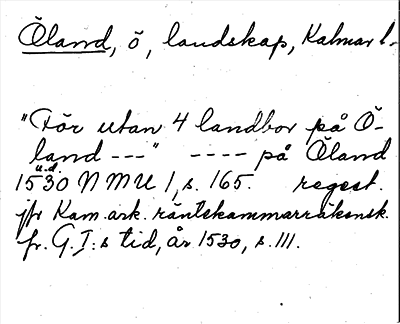 Öland, ö, landskap, Kalmar l.
"För utan 4 landbor på Ö-
land ---" ---- på Öland
u.d.
1530 NMU 1, s. 165. regest.
jfr Kam. ark. räntekammarräkensk.
fr. G. I:s tid, år 1530, s. 111.